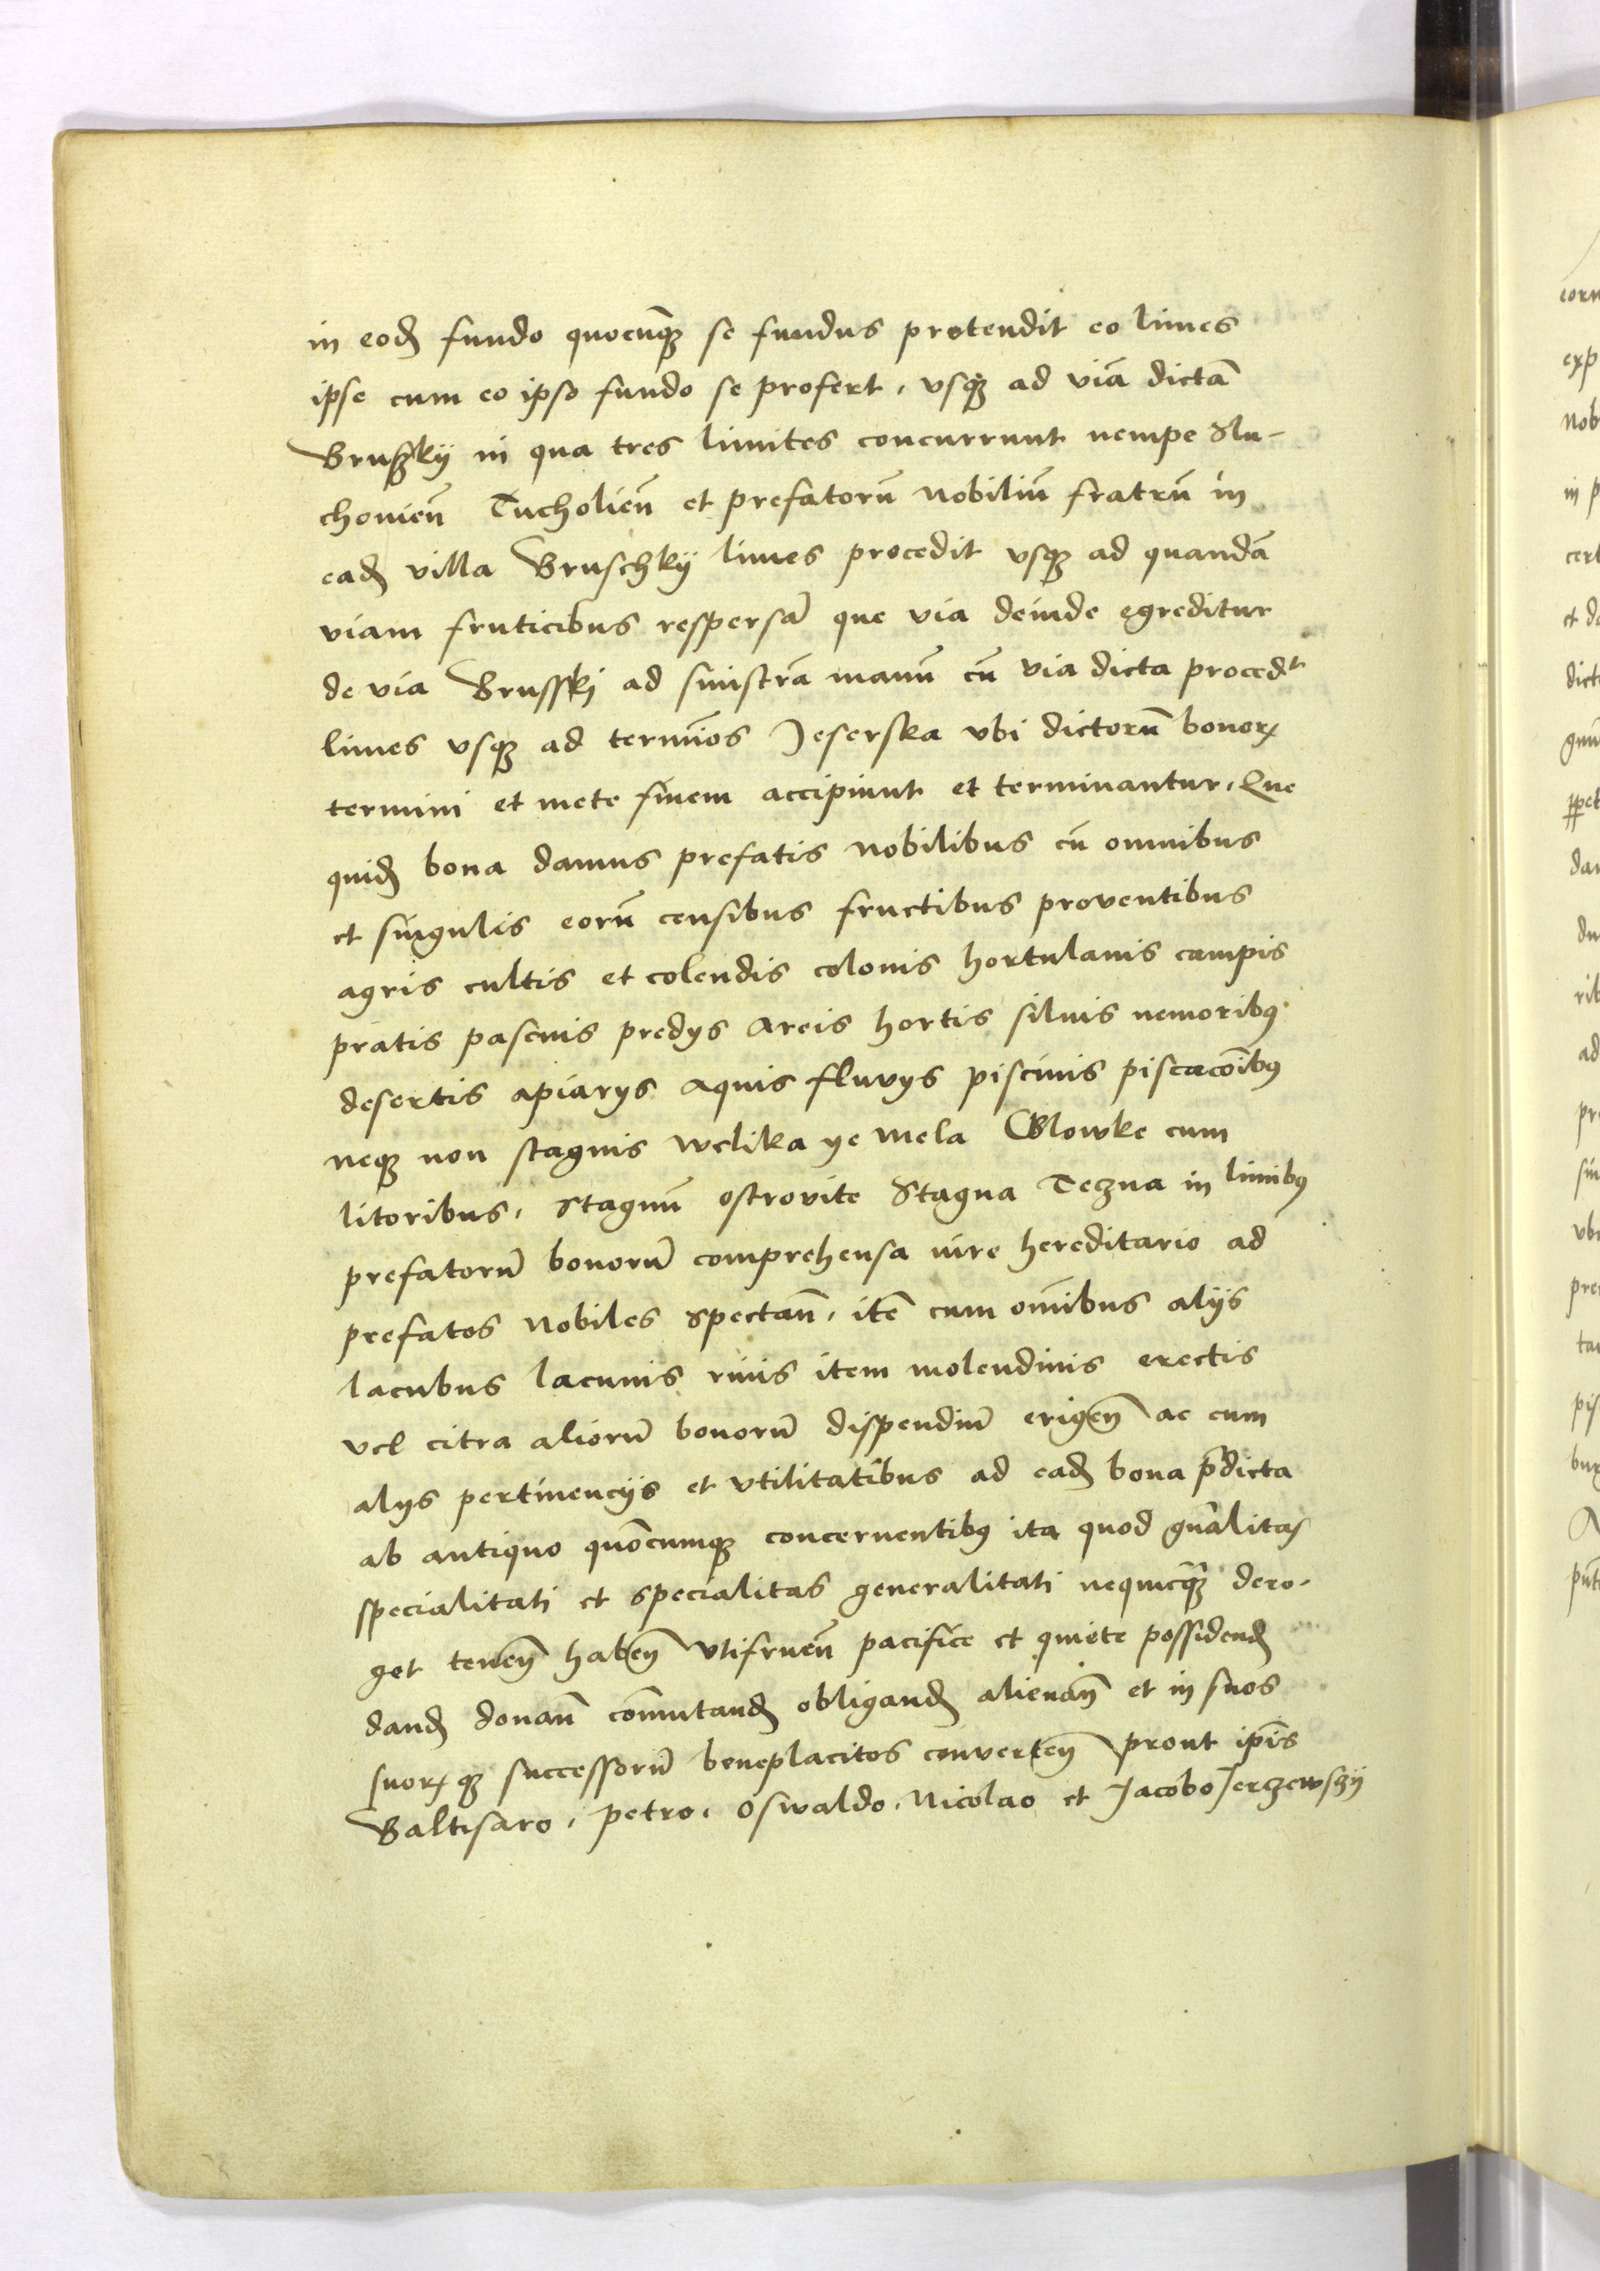 in eodē fundo quocunq̄ se fundus protendit eo limes
ipse cum eo ipso fundo se profert, vsq̄ ad viā dictā
Brusszkij in qua tres limites concurrunt nempe Slu-
chouieñ Tucholieñ et prefatorū nobiliū fratrū in
eadē villa Bruschkij limes procedit vsq̄ ad quandā
viam fruticibus respersā que via deinde egreditur
de via Brusskj ad sinistrā manū cū via dicta procedt
limes vsq̄ ad termīos Jeserska vbi dictorū bonoꝝ
termini et mete finem accipiunt et terminantur, Que
quidē bona damus prefatis nobilibus cū omnibus
et singulis eorū censibus fructibus proventibus
agris cultis et colendis colonis hortulanis campis
pratis pascuis predys areis hortis siluis nemoribꝰ
desertis apiarys aquis fluvys piscinis piscacōibꝰ
neqꝫ non stagnis welika ye mela Glowke cum
litoribus, stagnū ostrovite Stagna Teczna in limībꝰ
prefatorū bonorū comprehensa iure hereditario ad
prefatos nobiles spectañ, itē cum oībus alijs
lacubus lacunis riuis item molendinis erectis
vel citra aliorū bonorū dispendiū erigeñ ac cum
alys pertinencijs et vtilitatibus ad eadē bona p̄dicta
ab antiquo quōcumqꝫ concernentibꝰ ita quod gn̄alitas
specialitati et specialitas generalitati nequicq̄ dero-
get teneñ habeñ vtifrueñ pacifice et quiete possidenđ
danđ donañ com̄utanđ obliganđ alienañ et in suos
suoꝝqꝫ successorū beneplacitos converteñ prout ip̄is
Baltisaro, petro, Oswaldo, Nicolao et Jacobo Jerczewszij
corn
exp
nob
in p
cert
et da
dict
dar
du
rib
ad
pre
sin
vbi
pre
tan
pis